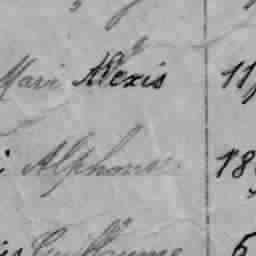 Mari Alexis 11
i Alphonse 18
Guillaume 6